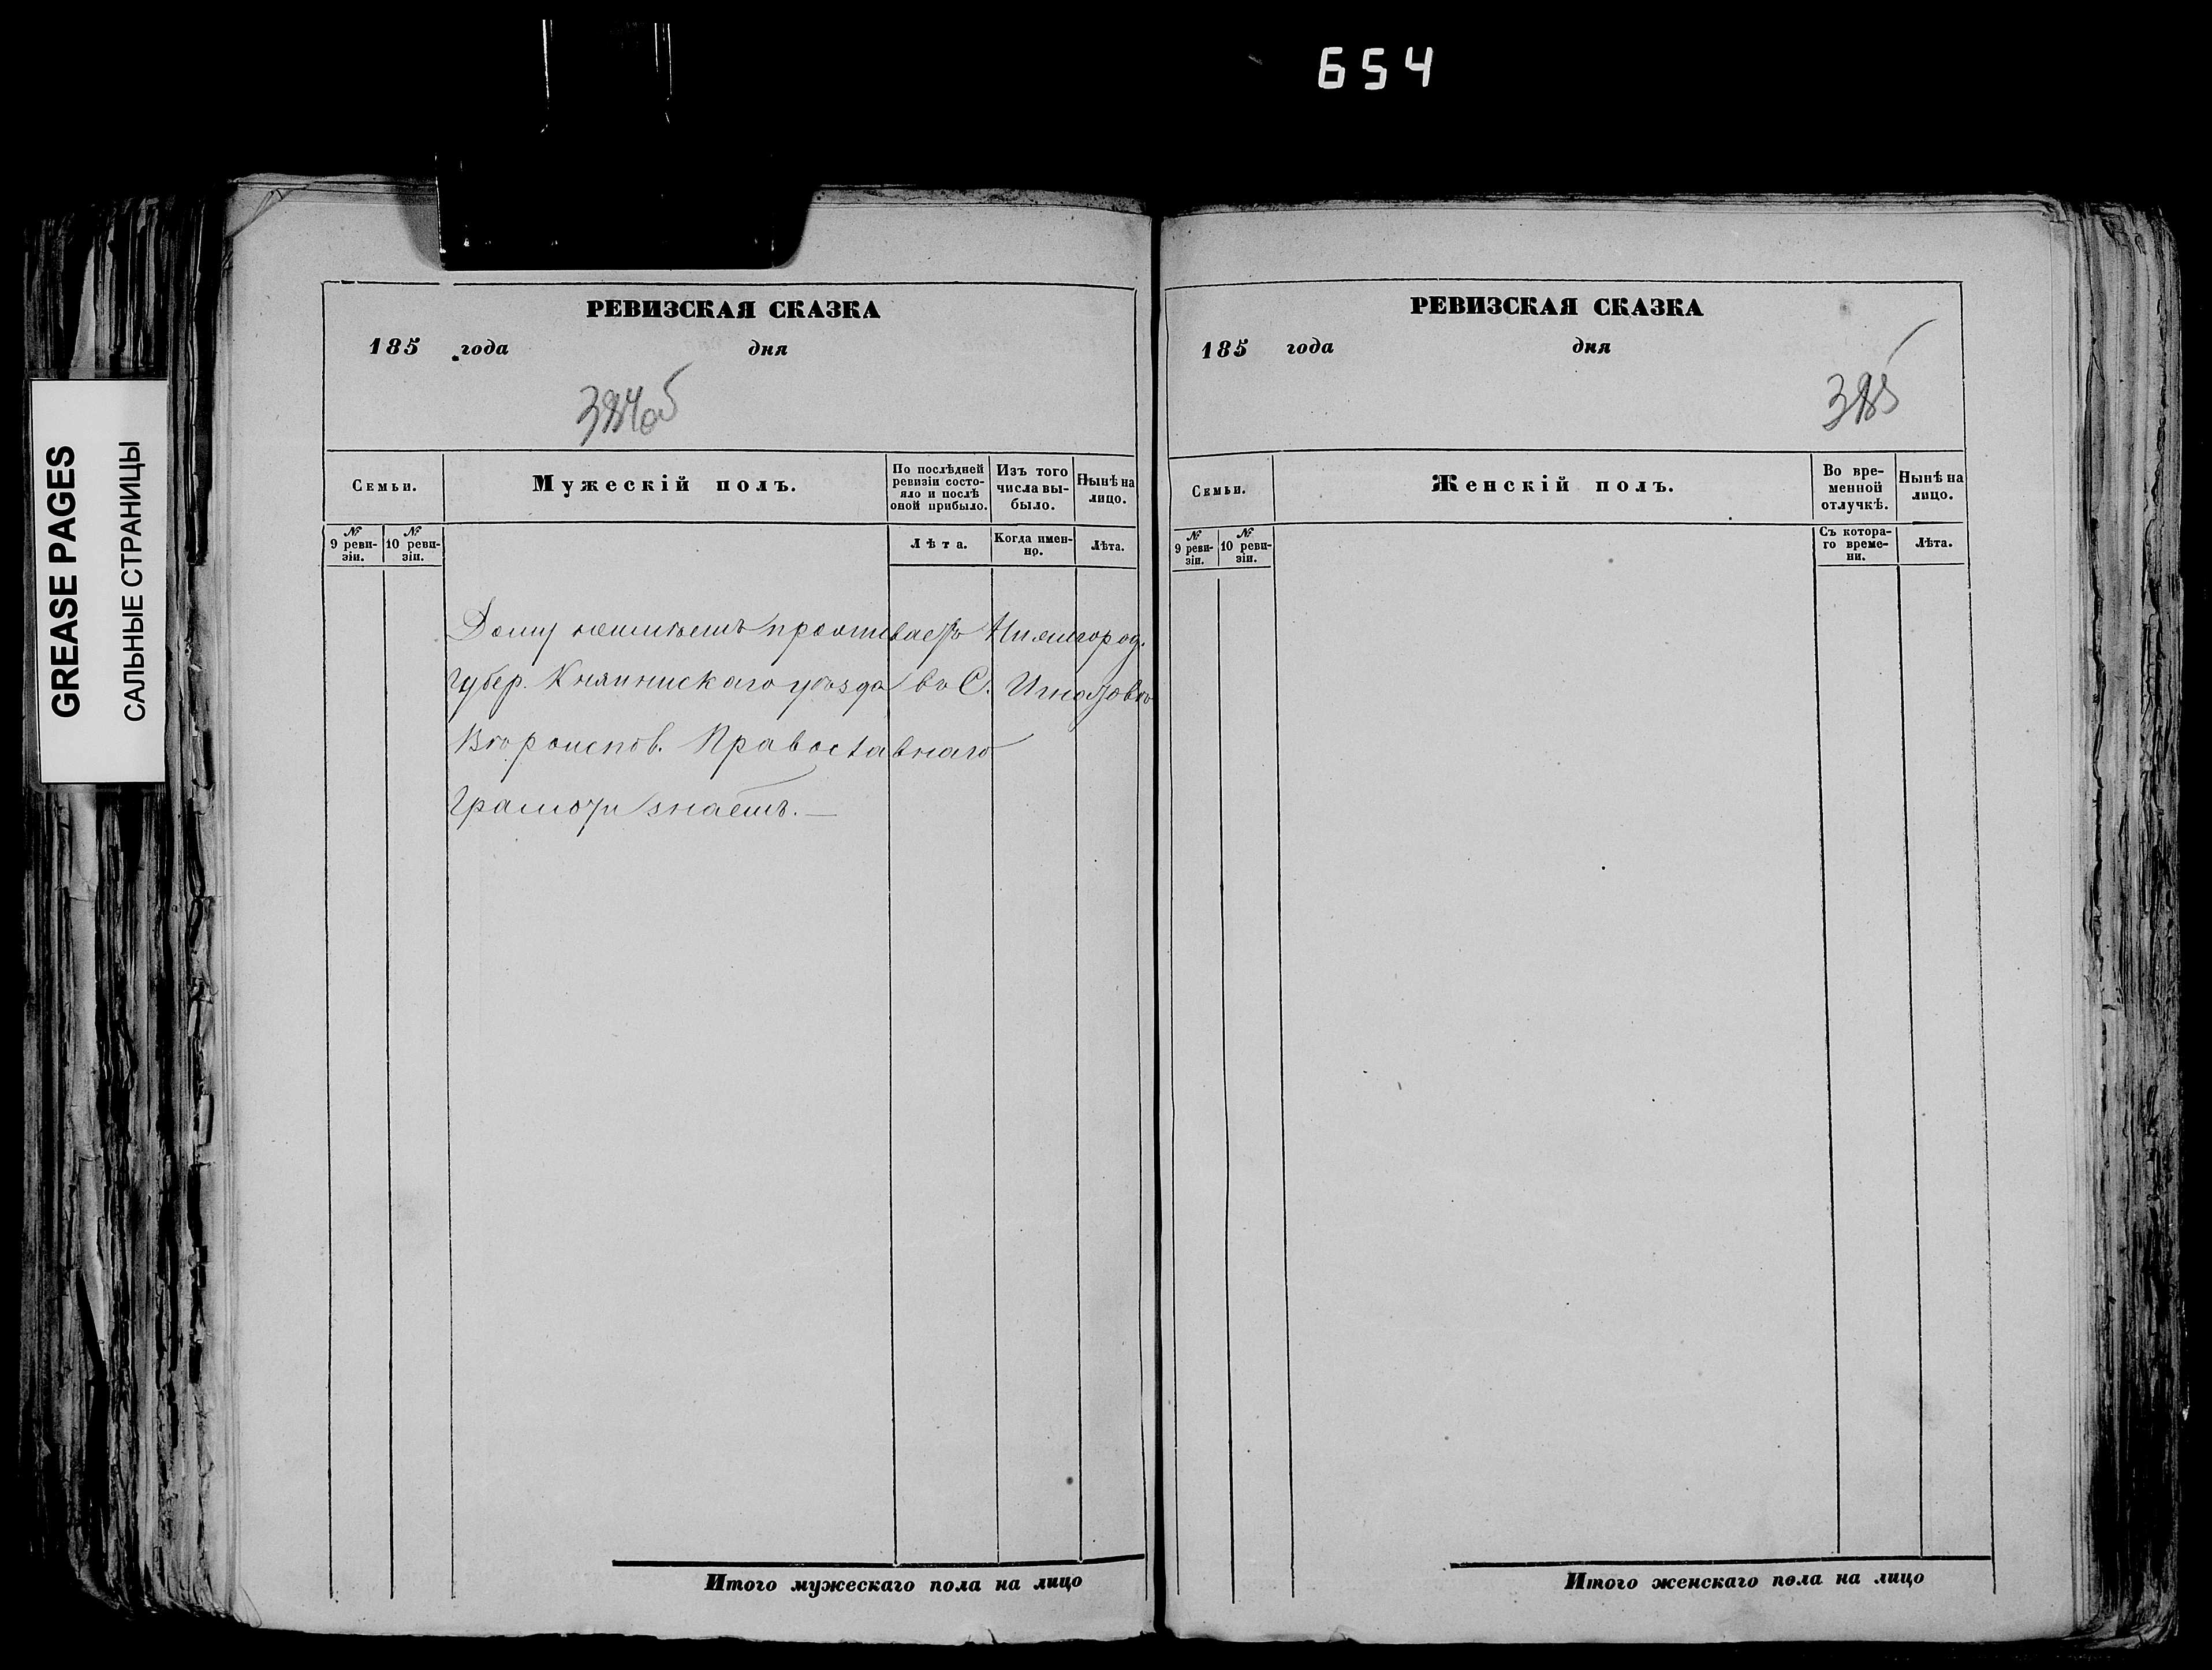 654
GREASE PAGES
САЛЬНЫЕ СТРАНИЦЫ
РЕВИЗСКАЯ СКАЗКА
185 года дня
384об
Семьи.
Мужескій полъ.
По послѣдней
ревизіи состо-
яло и послѣ
оной прибыло.
Изъ того
числа вы-
было.
Нынѣ на
лицо.
№
9 реви-
зіи.
№
10 реви-
зіи.
Лѣта.
Когда имен-
но.
Лѣта.
Дому неимѣетъ проживаетъ Нижегород.
губер. Княгинискаго уѣзда въ С. Игнатовѣ
Вѣроиспов. Православнаго
Грамоти знаетъ. —
Итого мужескаго пола на лицо
РЕВИЗСКАЯ СКАЗКА
185 года дня
385
Семьи.
Женскій полъ.
Во вре-
менной
отлучкѣ.
Нынѣ на
лицо.
№
9 реви-
зіи.
№
10 реви-
зіи.
Съ котора-
го време-
ни.
Лѣта.
Итого женскаго пола на лицо